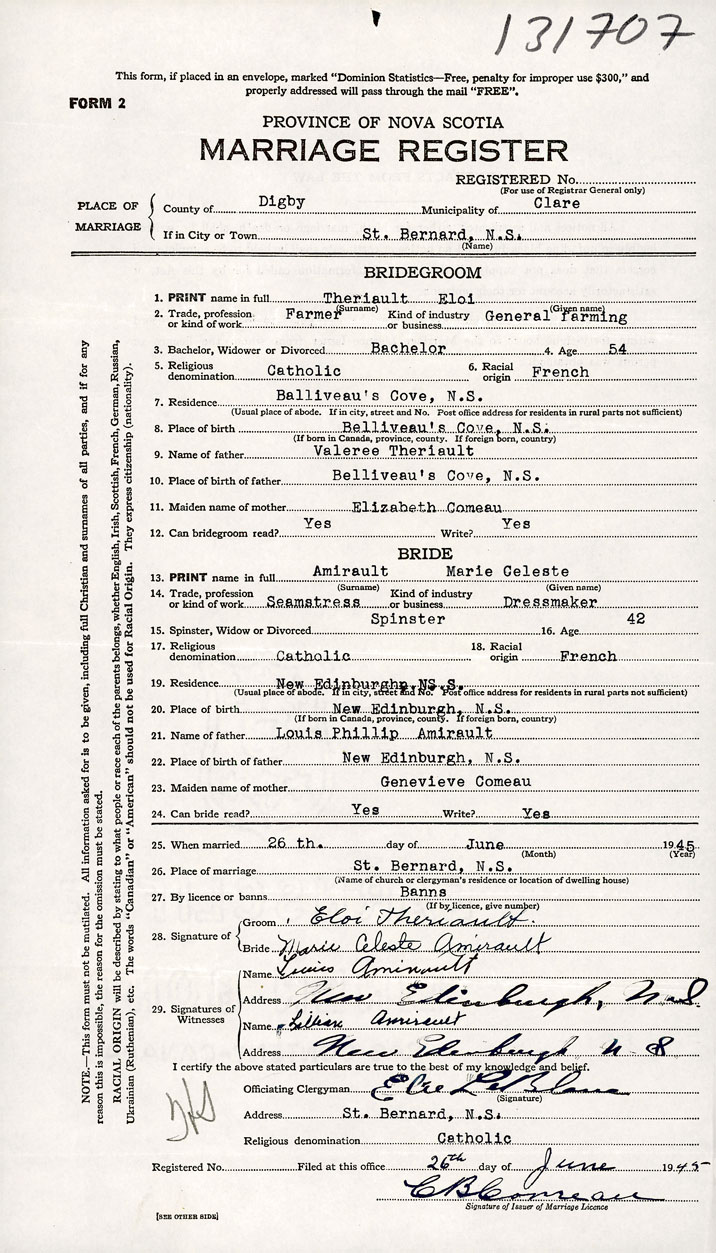 131707
This form, if placed in an envelope, marked "Dominion Statistics—Free, penalty for improper use $300," and
properly addressed will pass through the mail "FREE".
FORM 2
PROVINCE OF NOVA SCOTIA
MARRIAGE REGISTER
REGISTERED No.
(For use of Registrar General only)
PLACE OF MARRIAGE
County of Digby Municipality of Clare
If in City or Town St. Bernard, N.S.
(Name)
BRIDEGROOM
1. PRINT name in full Theriault Eloi
(Surname) (Given name)
2. Trade, profession or kind of work Farmer Kind of industry or business General farming
3. Bachelor, Widower or Divorced Bachelor 4. Age 54
5. Religious denomination Catholic 6. Racial origin French
7. Residence Balliveau's Cove, N.S.
(Usual place of abode. If in city, street and No. Post office address for residents in rural parts not sufficient)
8. Place of birth Belliveau's Cove, N.S.
(If born in Canada, province, county. If foreign born, country)
9. Name of father Valeree Theriault
10. Place of birth of father Belliveau's Cove, N.S.
11. Maiden name of mother Elizabeth Comeau
12. Can bridegroom read? Yes Write? Yes
BRIDE
13. PRINT name in full Amirault Marie Celeste
(Surname) (Given name)
14. Trade, profession or kind of work Seamstress Kind of industry or business Dressmaker
15. Spinster, Widow or Divorced Spinster 16. Age 42
17. Religious denomination Catholic 18. Racial origin French
19. Residence New Edinburgh, N.S.
(Usual place of abode. If in city, street and No. Post office address for residents in rural parts not sufficient)
20. Place of birth New Edinburgh, N.S.
(If born in Canada, province, county. If foreign born, country)
21. Name of father Louis Phillip Amirault
22. Place of birth of father New Edinburgh, N.S.
23. Maiden name of mother Genevieve Comeau
24. Can bride read? Yes Write? Yes
25. When married 26 th. day of June 1945
(Month) (Year)
26. Place of marriage St. Bernard, N.S.
(Name of church or clergyman's residence or location of dwelling house)
27. By licence or banns Banns
(If by licence, give number)
28. Signature of
Groom Eloi Theriault.
Bride Marie Celeste Amirault
29. Signatures of Witnesses
Name Louis Amirault
Address New Edinburgh, N.S.
Name Lillian Amirault
Address New Edinburgh N S
I certify the above stated particulars are true to the best of my knowledge and belief.
Officiating Clergyman Elie LeBlanc
(Signature)
Address St. Bernard, N.S.
Religious denomination Catholic
Registered No. Filed at this office 26th day of June 1945
C B Comeau
Signature of Issuer of Marriage Licence
[SEE OTHER SIDE]
NOTE.—This form must not be mutilated. All information asked for is to be given, including full Christian and surnames of all parties, and if for any
reason this is impossible, the reason for the omission must be stated.
RACIAL ORIGIN will be described by stating to what people or race each of the parents belongs, whether English, Irish, Scottish, French, German, Russian,
Ukrainian (Ruthenian), etc. The words "Canadian" or "American" should not be used for Racial Origin. They express citizenship (nationality).